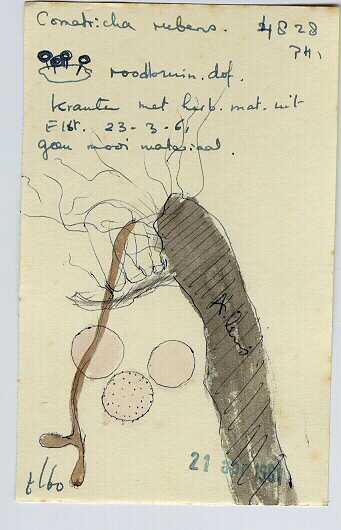 Comatricha rubens. 4828
PH,
roodbruin. dof.
Kranten met herb. mat. uit
Elst. 23-3-61
geen mooi materiaal.
21 apr 1961
t/60